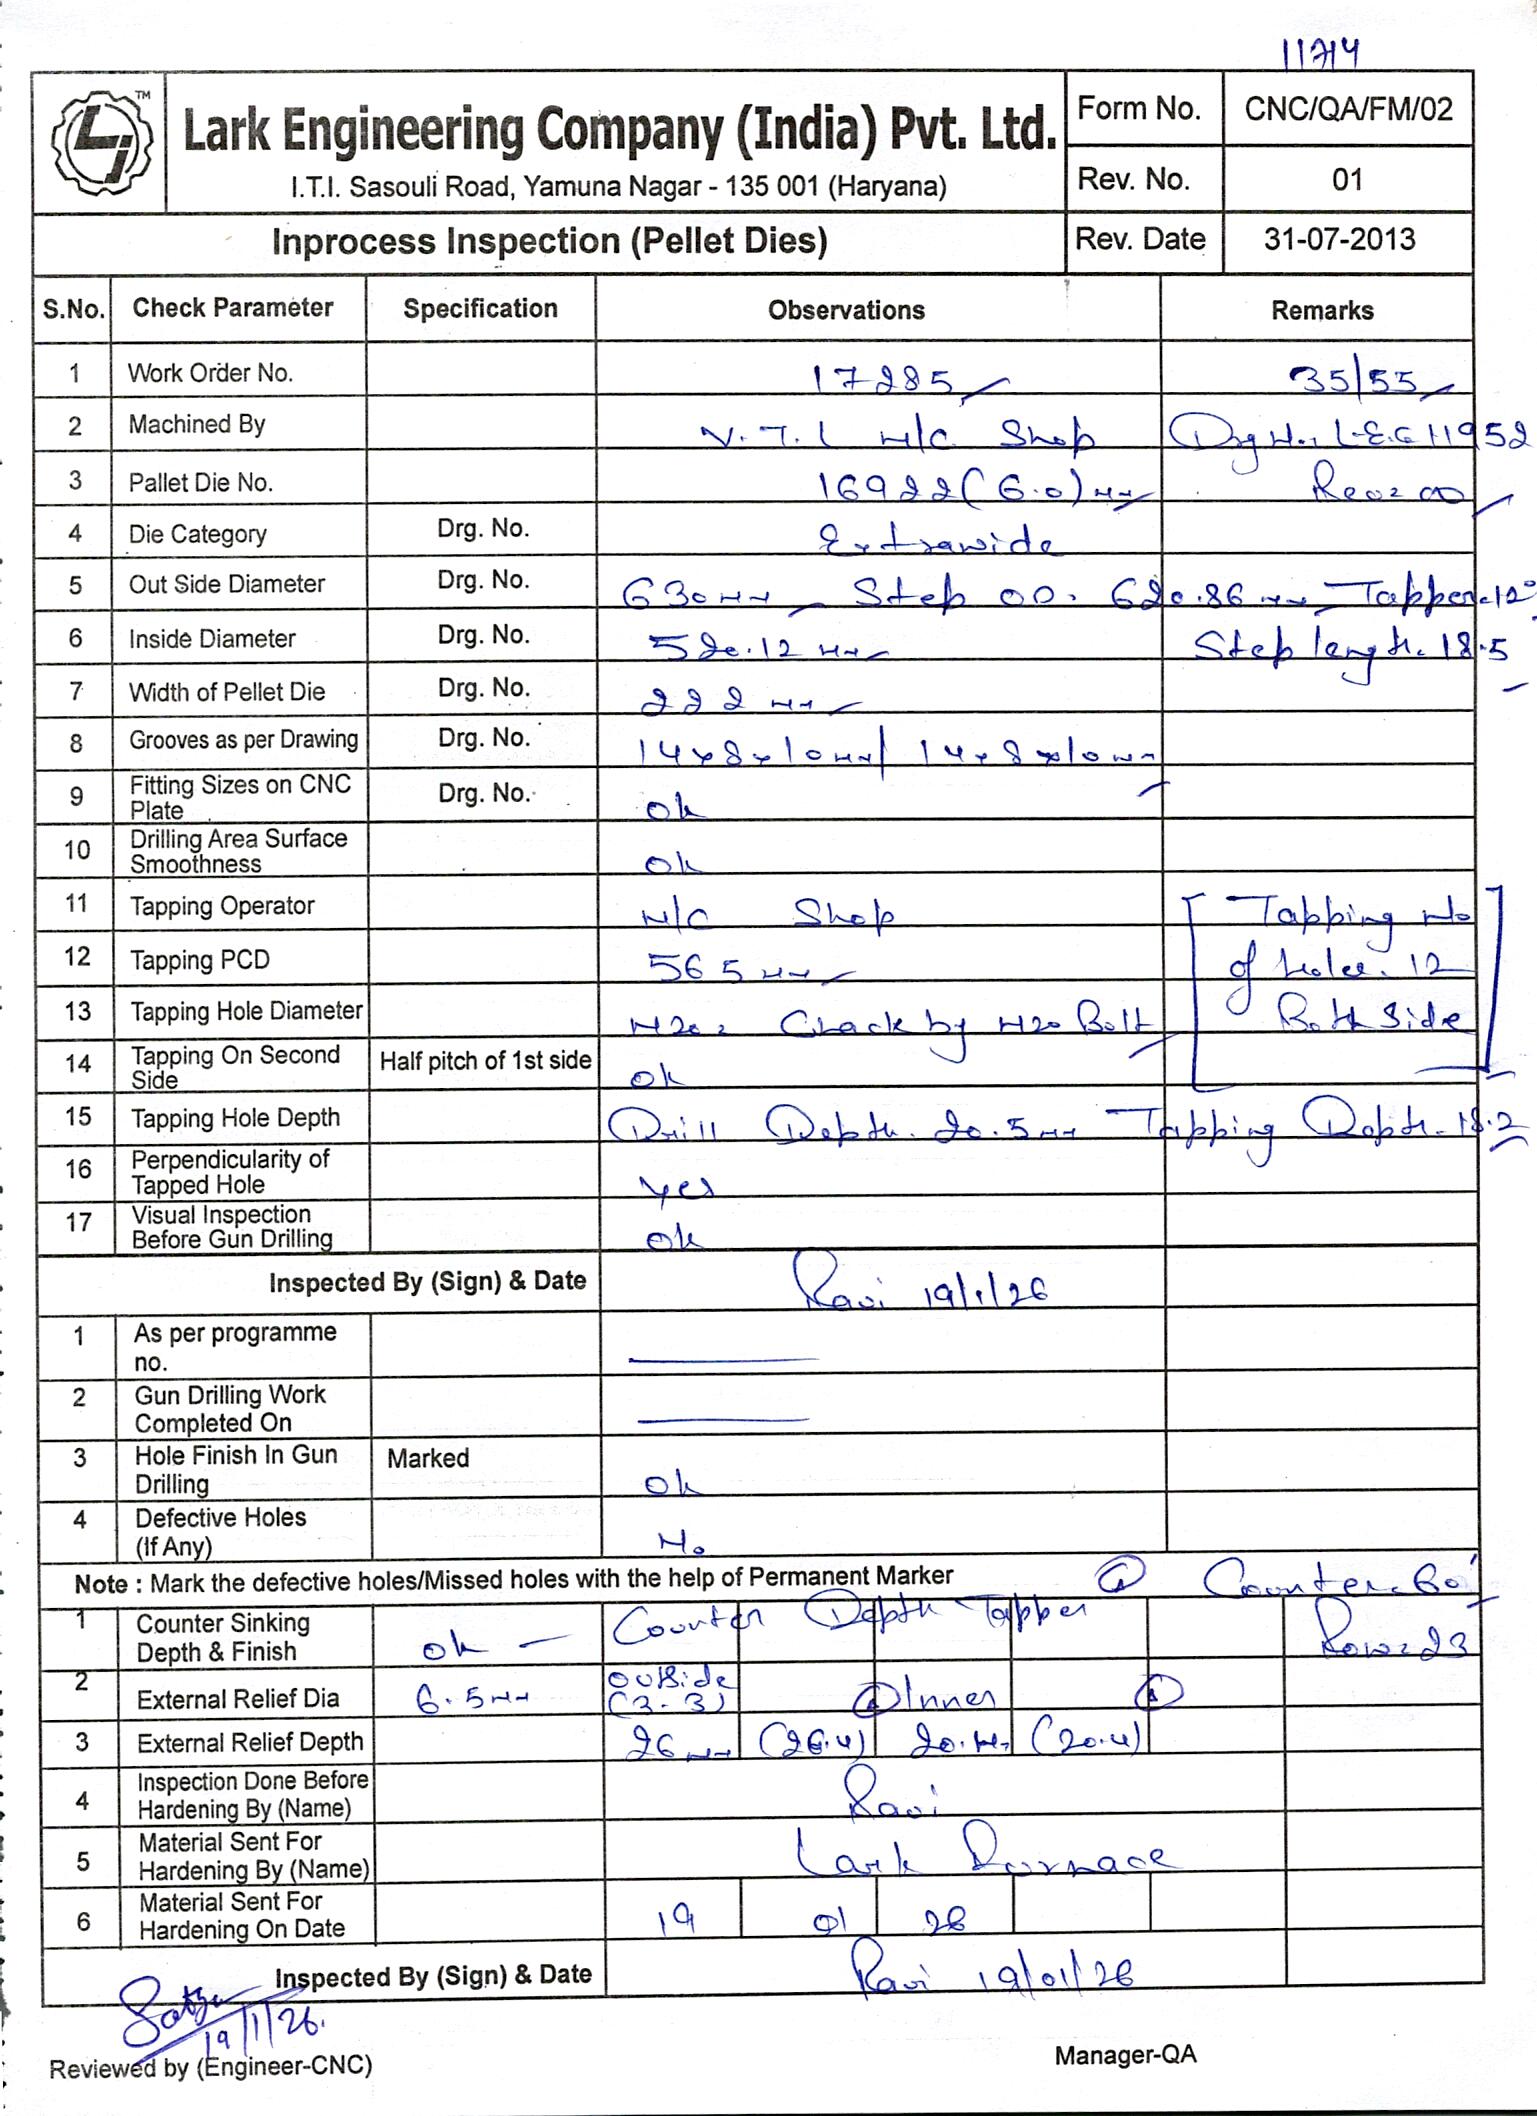 11714
TM
Lark Engineering Company (India) Pvt. Ltd.
I.T.I. Sasouli Road, Yamuna Nagar - 135 001 (Haryana)
Form No. CNC/QA/FM/02
Rev. No. 01
Inprocess Inspection (Pellet Dies) Rev. Date 31-07-2013
S.No. Check Parameter Specification Observations Remarks
1 Work Order No. 17285 35/55
2 Machined By V.T.L M/C Shop Drg No. L.E.C 11952
3 Pallet Die No. 16922 (6.0) mm Rev: 00
4 Die Category Drg. No. Extrawide
5 Out Side Diameter Drg. No. 630 mm Step OD. 620.86 mm Tapper-12°
6 Inside Diameter Drg. No. 520.12 mm Step length. 18.5
7 Width of Pellet Die Drg. No. 222 mm
8 Grooves as per Drawing Drg. No. 14x8x10mm/ 14x8x10mm
9 Fitting Sizes on CNC Plate Drg. No. ok
10 Drilling Area Surface Smoothness ok
11 Tapping Operator M/C Shop Tapping No
12 Tapping PCD 565 mm of holes. 12
13 Tapping Hole Diameter M20: Check by M20 Bolt Both Side
14 Tapping On Second Side Half pitch of 1st side ok
15 Tapping Hole Depth Drill Depth. 20.5mm Tapping Depth-18.2
16 Perpendicularity of Tapped Hole Yes
17 Visual Inspection Before Gun Drilling ok
Inspected By (Sign) & Date Ravi 19/1/26
1 As per programme no.
2 Gun Drilling Work Completed On
3 Hole Finish In Gun Drilling Marked ok
4 Defective Holes (If Any) No
Note : Mark the defective holes/Missed holes with the help of Permanent Marker Counter-60°
1 Counter Sinking Depth & Finish ok Counter Depth Tapper Row=23
2 External Relief Dia 6.5mm outside (3-3) Inner
3 External Relief Depth 26mm (26.4) 20.M. (20.4)
4 Inspection Done Before Hardening By (Name) Ravi
5 Material Sent For Hardening By (Name) Lark Furnace
6 Material Sent For Hardening On Date 19 01 26
Inspected By (Sign) & Date Ravi 19/01/26
19/1/26.
Reviewed by (Engineer-CNC) Manager-QA